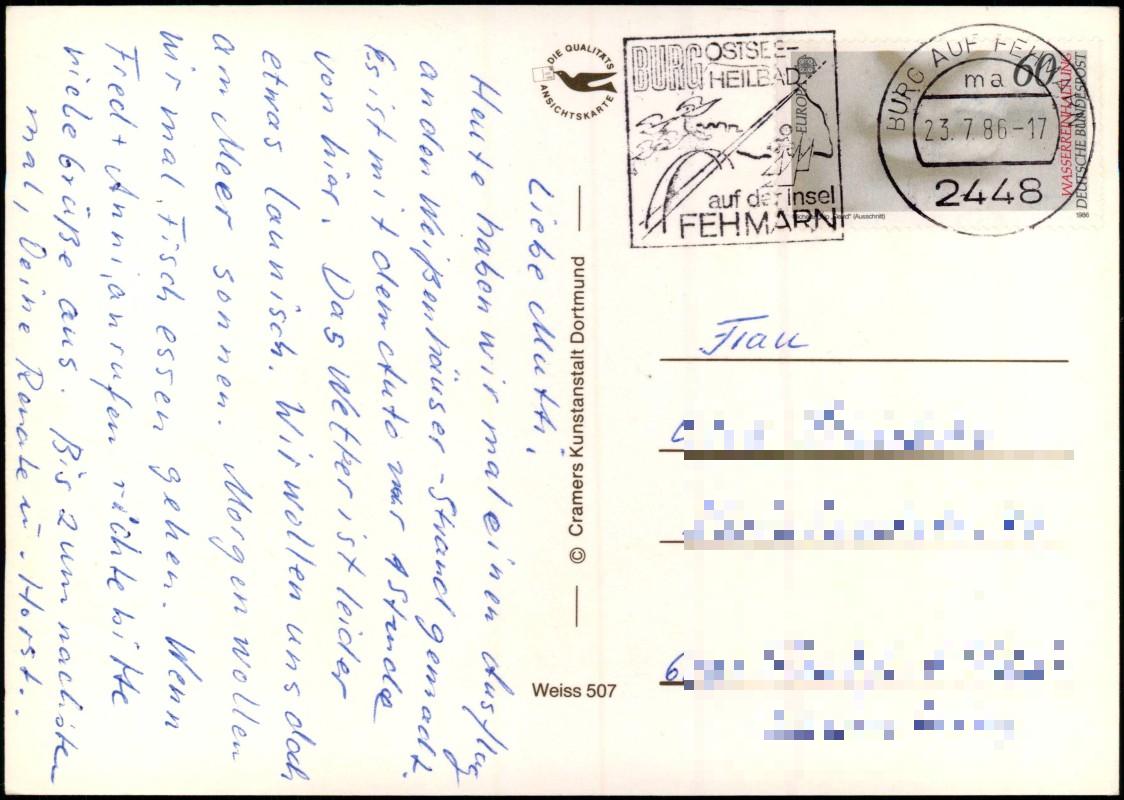 Liebe Mutti,
Heute haben wir mal einen Ausflug
an den Weißenhäuser-Strand gemacht.
Es ist mit dem Auto nur 1 Stunde
von hier. Das Wetter ist leider
etwas launisch. Wir wollen uns doch
am Meer sonnen. Morgen wollen
wir mal Fisch essen gehen. Wenn
Fred + Anni anrufen richte bitte
viele Grüße aus. Bis zum nächsten
mal, Deine Renate u. Horst.
DIE QUALITÄTS
ANSICHTSKARTE
© Cramers Kunstanstalt Dortmund
Weiss 507
BURG OSTSEE-
HEILBAD
auf der Insel
FEHMARN
BURG AUF FEHM
ma
23.7.86-17
2448
60
EUROPA
WASSERREINHALTUNG
DEUTSCHE BUNDESPOST
"David" (Ausschnitt)
1986
Frau
6